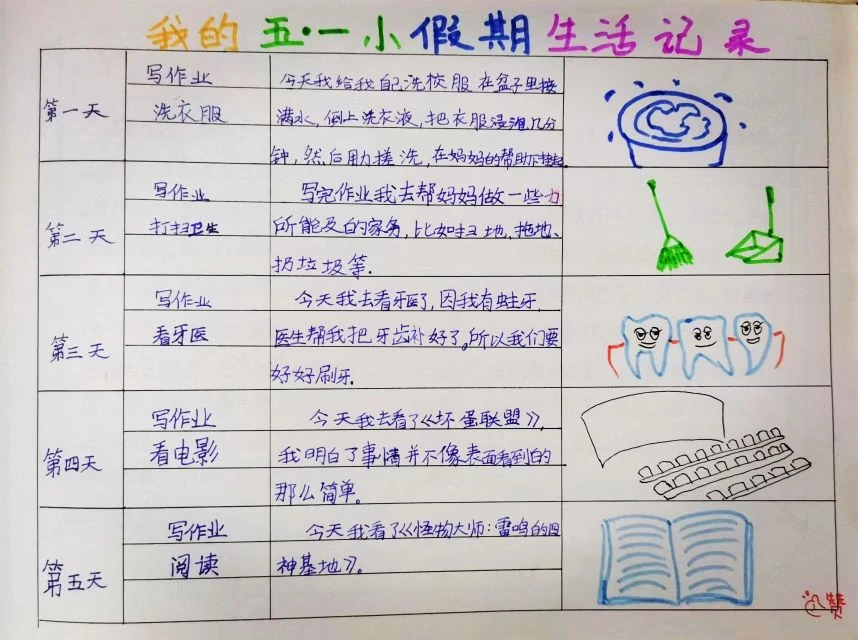 我的五·一小假期生活记录
第一天
写作业
洗衣服
今天我给我自己洗校服在盆子里接
满水,倒上洗衣液,把衣服浸泡几分
钟,然后用力搓洗,在妈妈的帮助下挂起
第二天
写作业
打扫卫生
写完作业我去帮妈妈做一些力
所能及的家务,比如扫地、拖地、
扔垃圾等.
第三天
写作业
看牙医
今天我去看牙医了,因我有蛀牙,
医生帮我把牙齿补好了。所以我们要
好好刷牙.
第四天
写作业
看电影
今天我去看了《坏蛋联盟》,
我明白了事情并不像表面看到的
那么简单。
第五天
写作业
阅读
今天我看了《怪物大师:雷鸣的四
神基地》。
赞